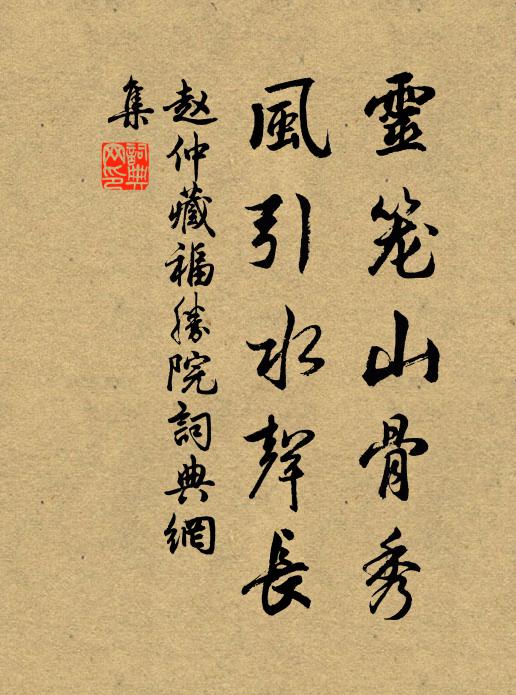 靈笼山骨秀
風引水聲長
赵仲藏福勝院詞典網
集
詞典网印